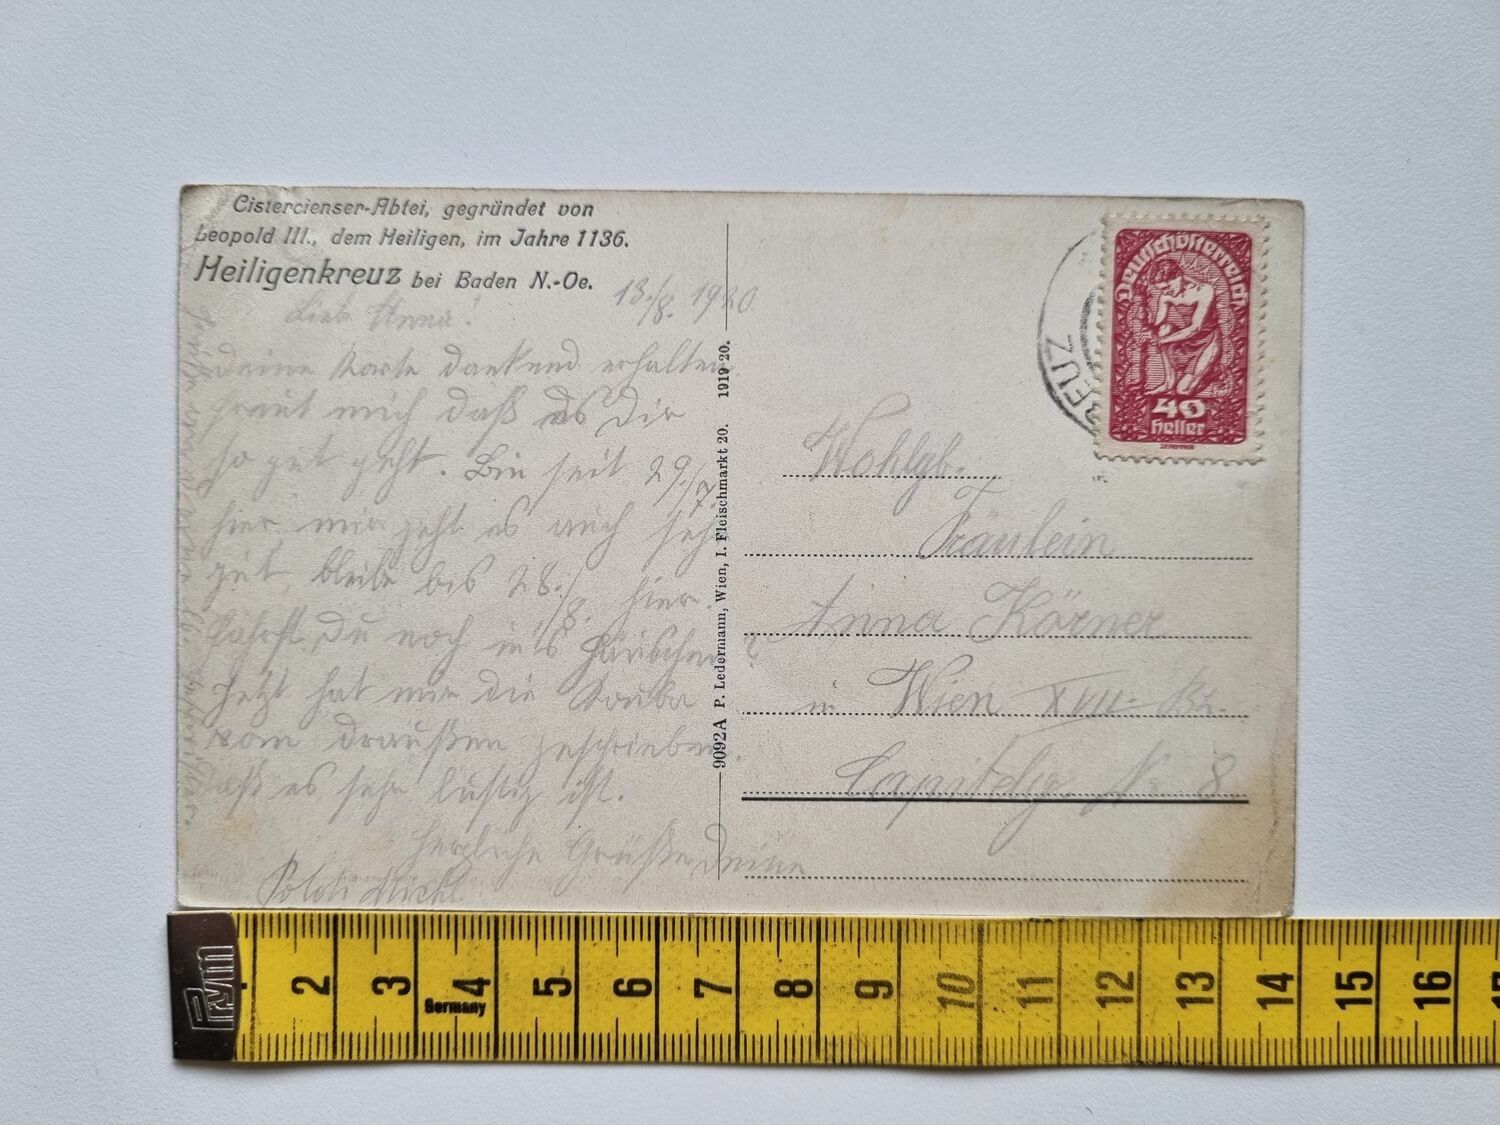 Cistercienser-Abtei, gegründet von
Leopold III., dem Heiligen, im Jahre 1136.
Heiligenkreuz bei Baden N.-Oe.
13./8. 1920
Liebe Anna!
Deine Karte dankend erhalten
freut mich daß es Dir
so gut geht. Bin seit 29./7.
hier mir geht es auch sehr
gut, bleibe bis 28./8. hier.
Fährst Du noch in's Häuschen?
Jetzt hat mir die
vom draußen geschrieben
daß es sehr lustig ist.
Herzliche Grüße Deine
Poldi Michl.
9092A P. Ledermann, Wien, I. Fleischmarkt 20. 1919-20.
REUZ
Deutschösterreich
40
Heller
Wohlgb.
Fräulein
Anna Körner
in Wien XVII. Bz.
Capitelg. Nr. 8
Prym
2 3 4 5 6 7 8 9 10 11 12 13 14 15 16
Germany